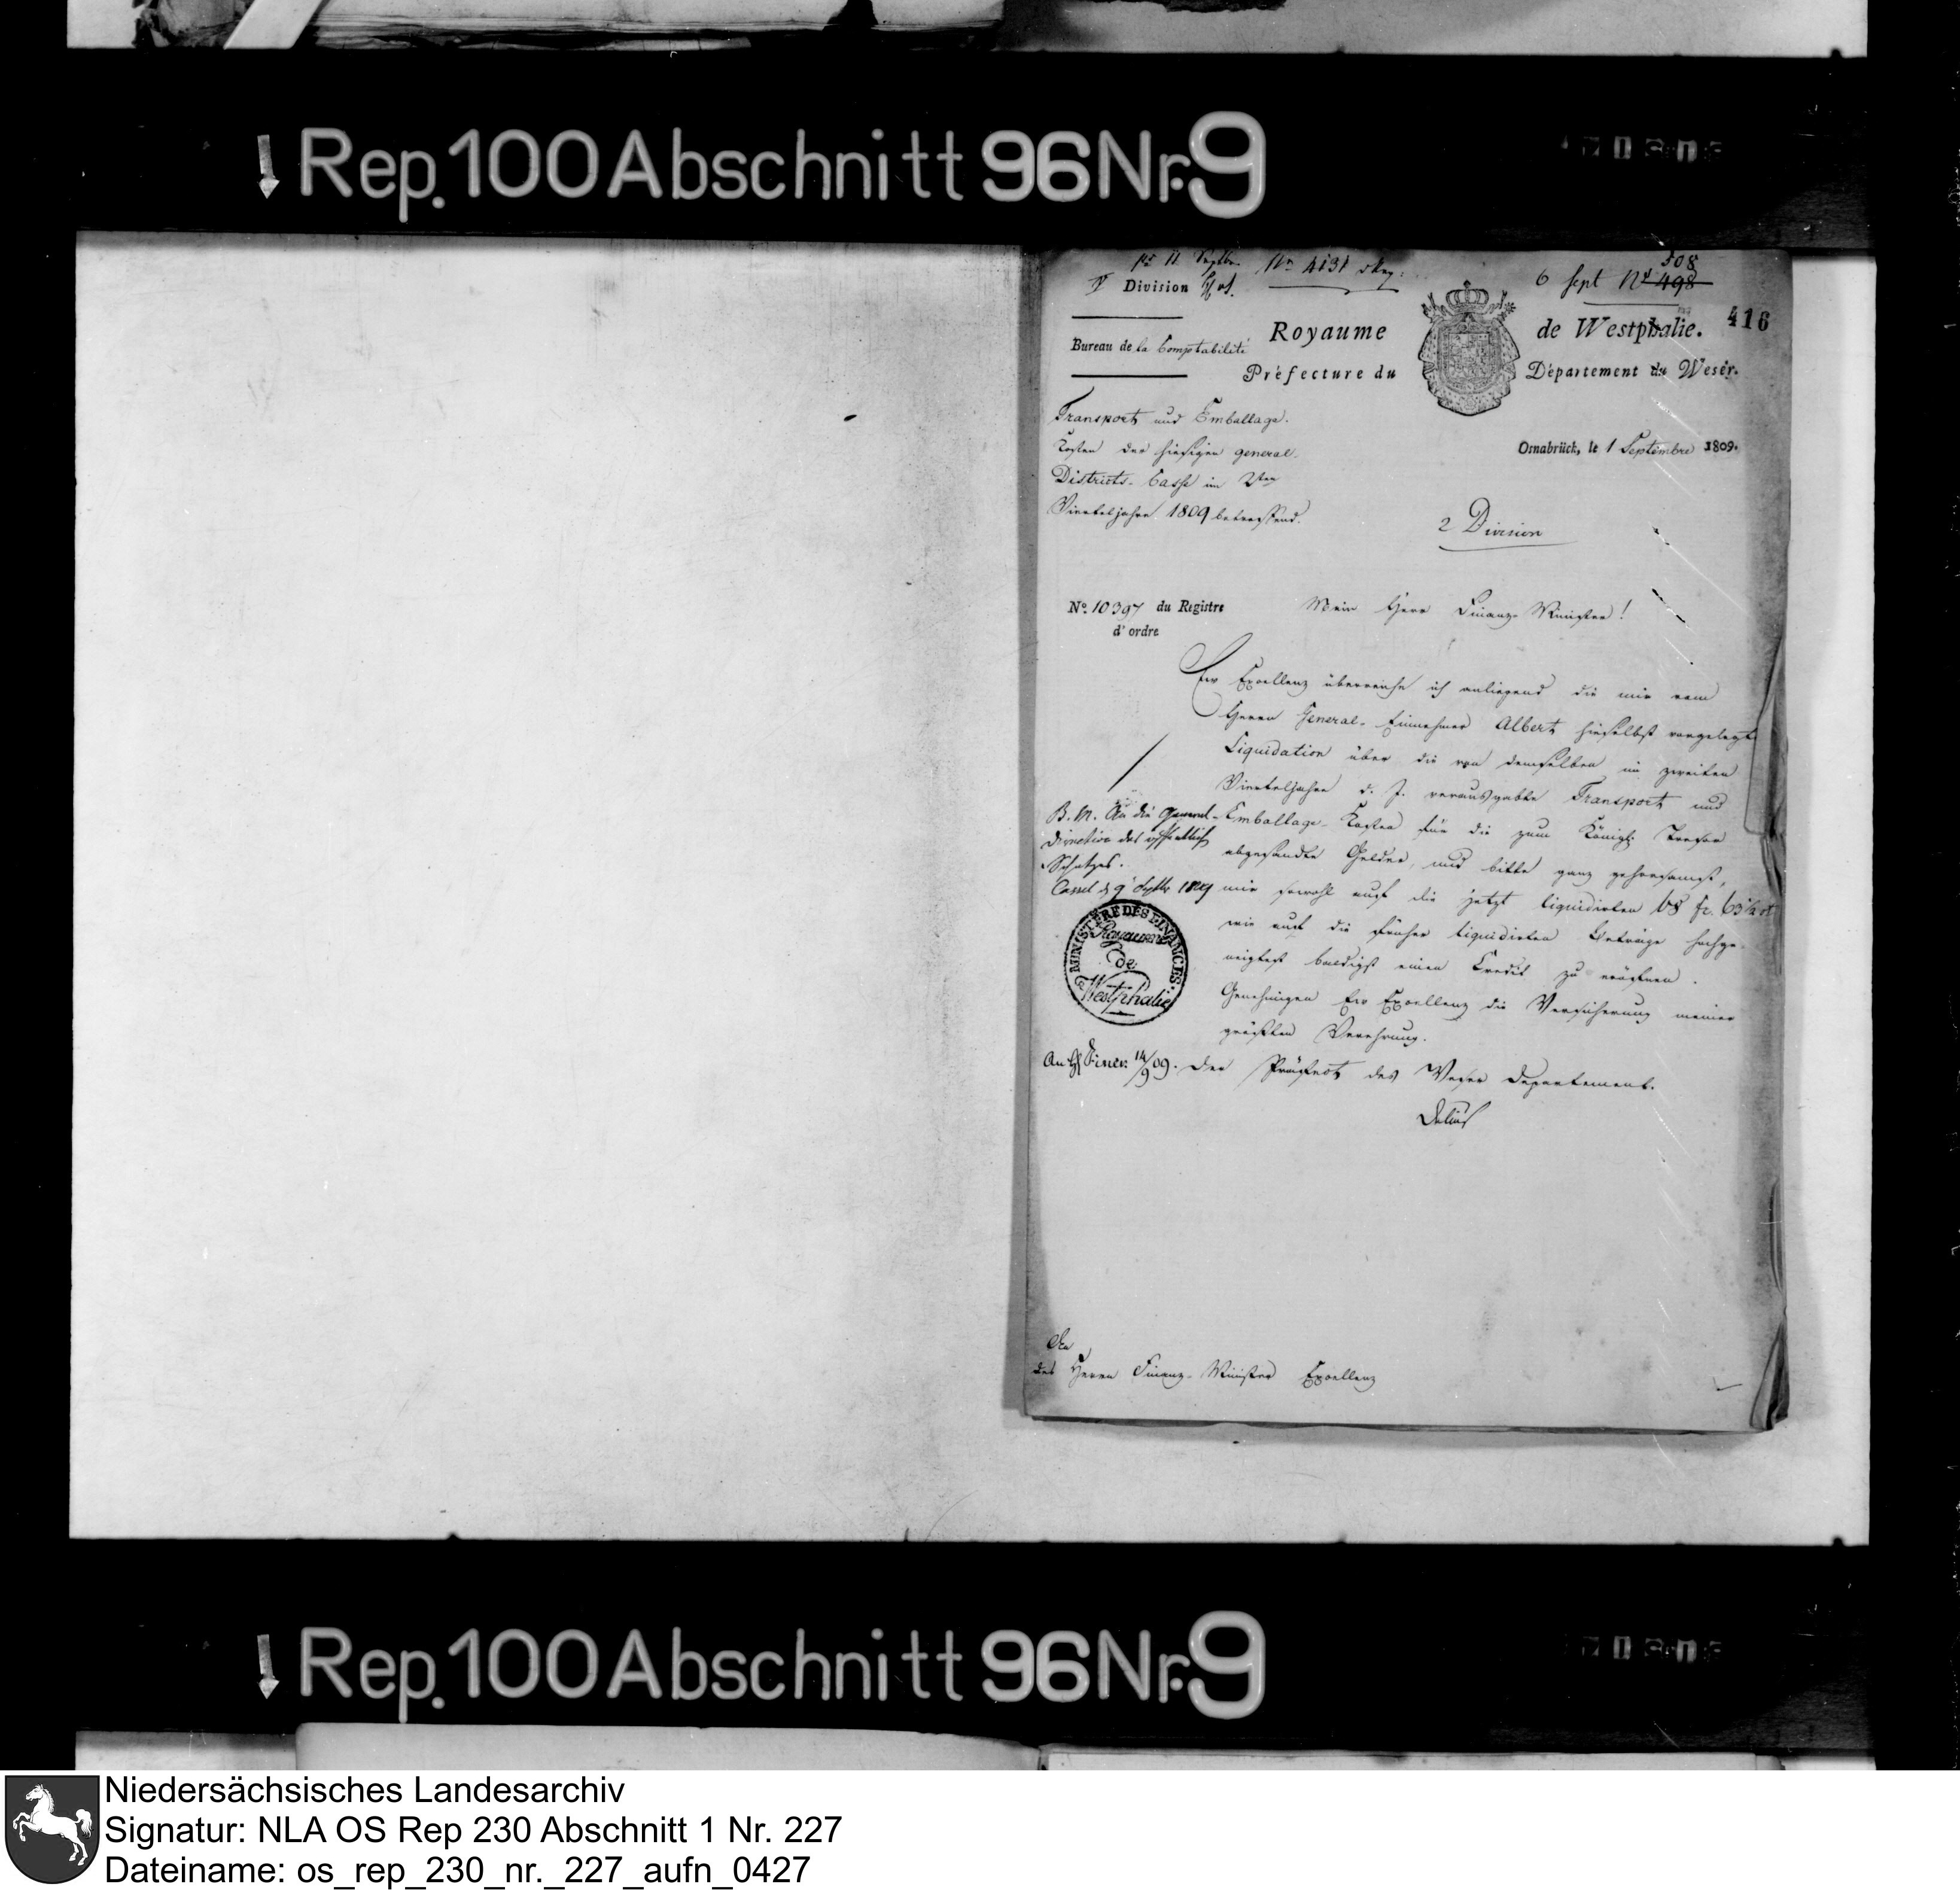 Rep. 100 Abschnitt 96 Nr. 9
pr 11 Septbr. Nro 4131
508
6 Sept No 498
Division
416
Royaume de Westphalie.
Bureau de la Comptabilité
Préfecture du Département du Weser.
Transport und Emballage-
Kosten der hiesigen General-
Districts-Casse im 2ten
Vierteljahre 1809 betreffend.
Osnabrück, le 1 Septembre 1809.
2 Division
No. 10397 du Registre
d'ordre
Mein Herr Finanz-Minister!
Ew Excellenz überreiche ich anliegend die mir vom
Herrn General-Einnehmer Albert hieselbst vorgelegte
Liquidation über die von demselben im zweiten
Vierteljahre d. J. verausgabte Transport und
Emballage-Kosten für die zum Königl. Tresor
abgesandte Gelder, und bitte ganz gehorsamst,
mir sowohl auf die jetzt liquidirten 68 fr.
wie auch die früher liquidirten Beträge hochge-
neigtest baldigst einen Credit zu eröffnen.
Genehmigen Ew Excellenz die Versicherung meiner
größten Verehrung.
Der Präfect des Weser Departement.
Delius
B. M. An die General-
Direction des öffentlichen
Schatzes.
Cassel d 9 Septbr 1809
MINISTÈRE DES FINANCES
Royaume
de
Westphalie
14/9 09.
An
des Herrn Finanz-Minister Excellenz
Rep. 100 Abschnitt 96 Nr. 9
Niedersächsisches Landesarchiv
Signatur: NLA OS Rep 230 Abschnitt 1 Nr. 227
Dateiname: os_rep_230_nr._227_aufn_0427